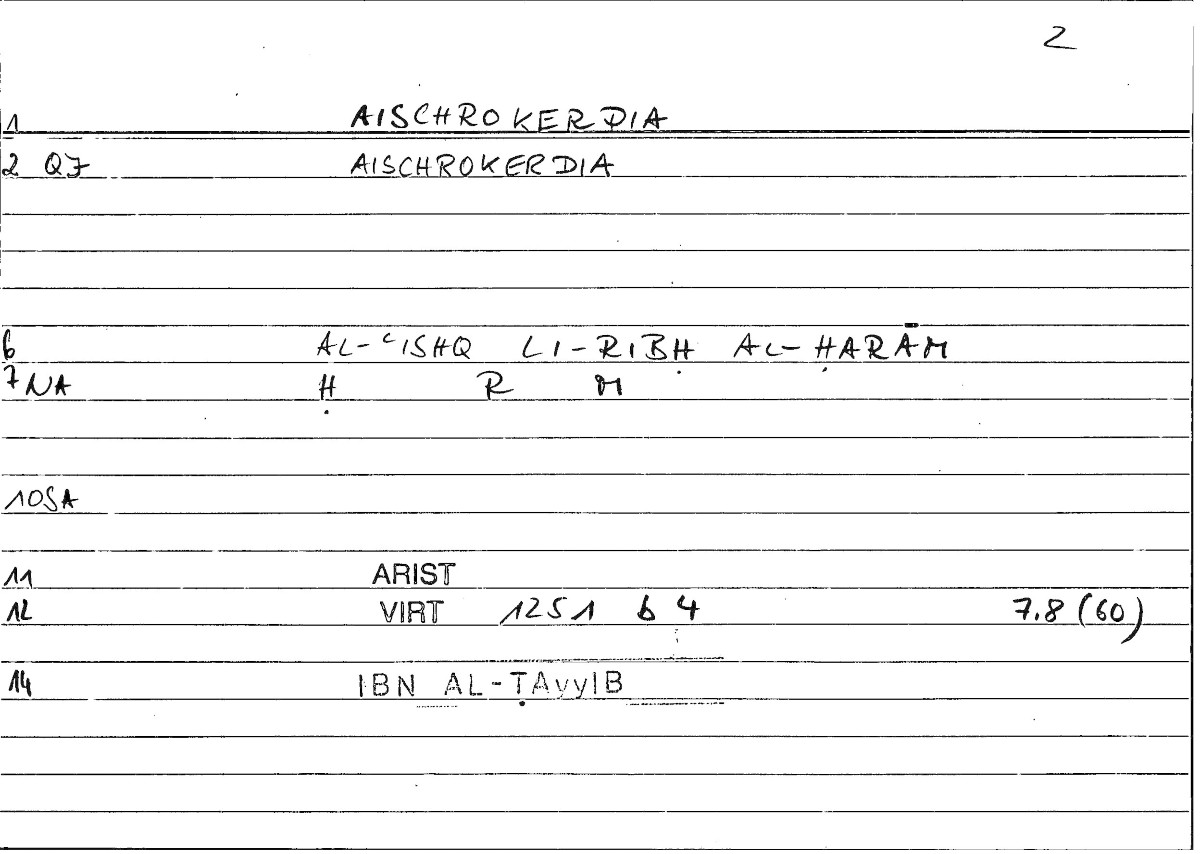 2
1 AISCHROKERDIA
2 QJ AISCHROKERDIA
6 AL-ʿISHQ LI-RIBḤ AL-ḤARĀM
7 NA Ḥ R M
10SA
11 ARIST
12 VIRT 1251 b 4 7.8 (60)
14 IBN AL-ṬAyyIB